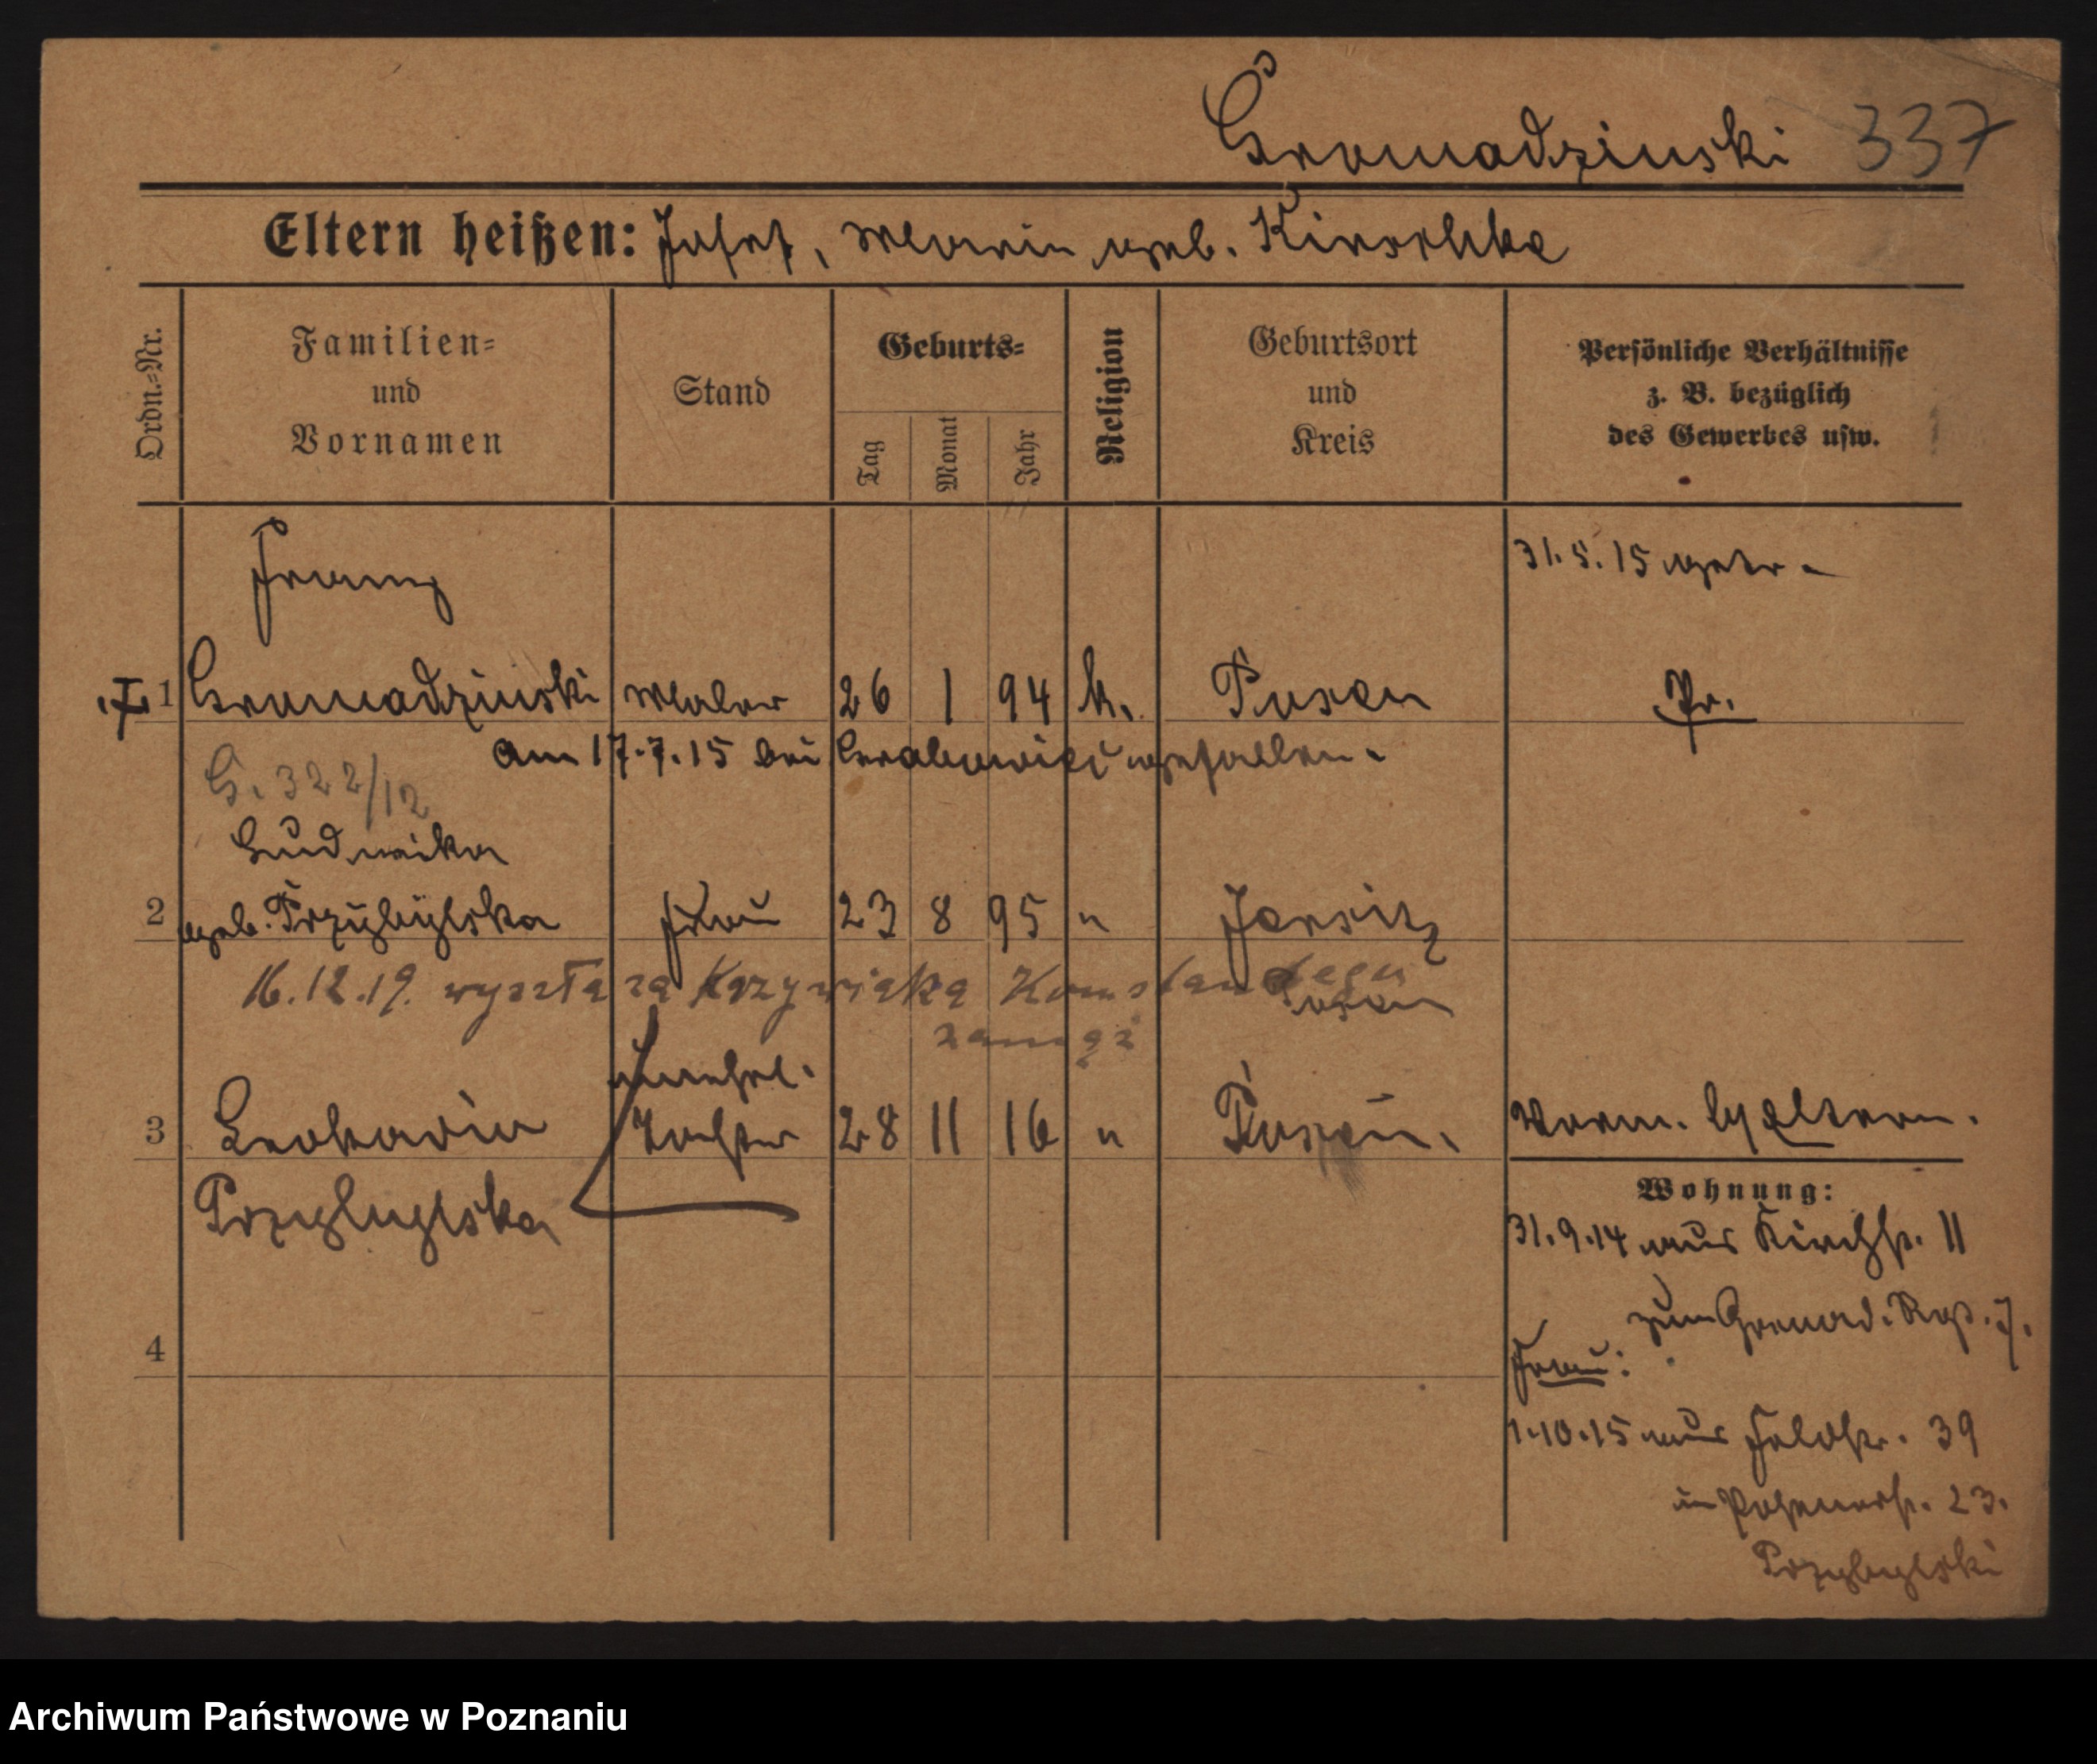 Gromadzinski 337
Eltern heißen: Josef, Marie geb. Kirschke
Ordn.-Nr.
Familien-
und
Vornamen
Stand
Geburts-
Tag
Monat
Jahr
Religion
Geburtsort
und
Kreis
Persönliche Verhältnisse
z. B. bezüglich
des Gewerbes usw.
Franz
31.5.15 getr.
1 Gromadzinski Maler 26 1 94 k. Posen Pr.
Am 17.7.15 bei gefallen.
G. 322/12
Ludwika
2 geb. Przybylska Frau 23 8 95 " Jersitz
16.12.19. wyszła za Krzywiaka Konstantego
Posen
zamąż
unehel.
3 Leokadia Tochter 28 11 16 " Posen. Eltern.
Przybylska
Wohnung:
31.9.14 aus Kirchstr. 11
zum Grenad. Rgt. 7.
4
Frau:
1.10.15 aus Feldstr. 39
in Posenerstr. 23.
Przybylski
Archiwum Państwowe w Poznaniu